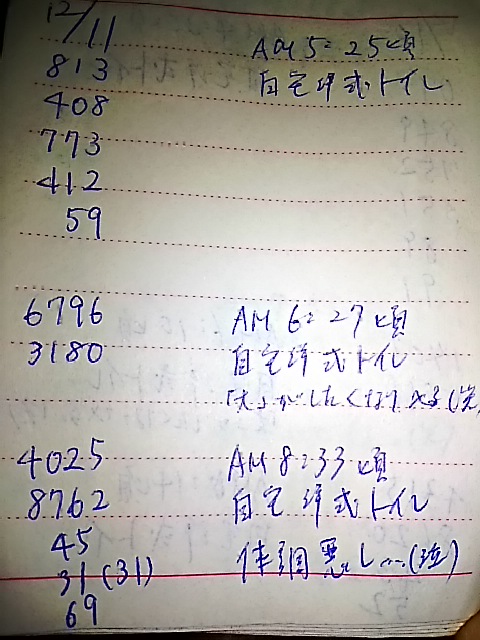 12/11
813 AM5:25頃
408 自宅洋式トイレ
773
412
59
6796 AM 6:27頃
3180 自宅洋式トイレ
「大」がしたくなり
4025 AM 8:33頃
8762 自宅洋式トイレ
45
31(31) 体調悪し…(泣)
69